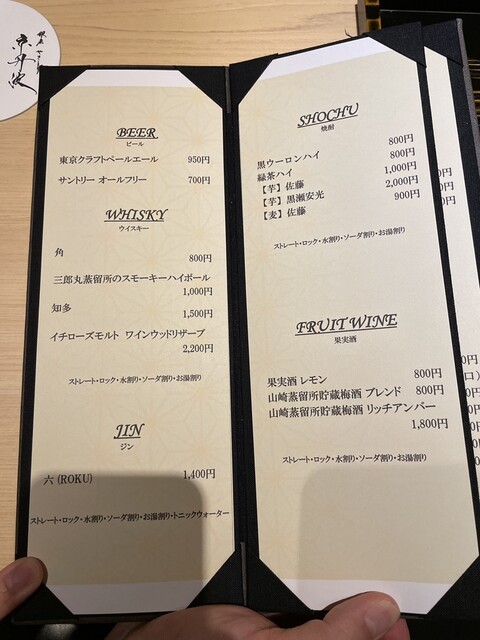 BEER
ビール
東京クラフトペールエール 950円
サントリー オールフリー 700円
WHISKY
ウイスキー
角 800円
三郎丸蒸留所のスモーキーハイボール
1,000円
知多 1,500円
イチローズモルト ワインウッドリザーブ
2,200円
ストレート・ロック・水割り・ソーダ割り・お湯割り
JIN
ジン
六 (ROKU) 1,400円
ストレート・ロック・水割り・ソーダ割り・お湯割り・トニックウォーター
SHOCHU
焼酎
黒ウーロンハイ 800円
緑茶ハイ 800円
【芋】佐藤 1,000円
【芋】黒瀬安光 2,000円
【麦】佐藤 900円
ストレート・ロック・水割り・ソーダ割り・お湯割り
FRUIT WINE
果実酒
果実酒 レモン 800円
山崎蒸留所貯蔵梅酒 ブレンド 800円
山崎蒸留所貯蔵梅酒 リッチアンバー
1,800円
ストレート・ロック・水割り・ソーダ割り・お湯割り